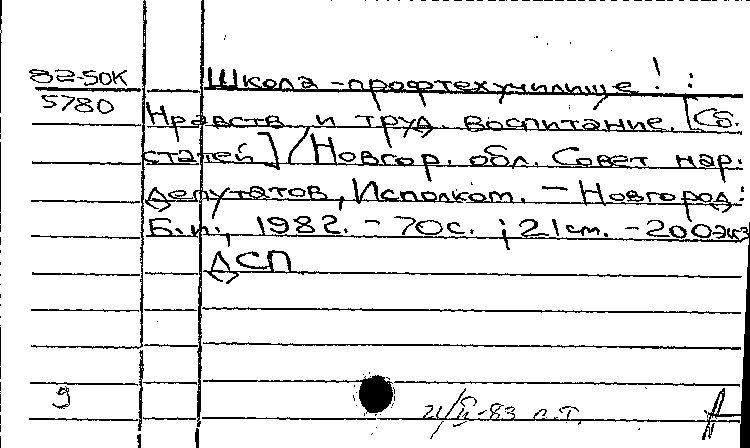 82-50К Школа-профтехучилище! :
5780 Нравств. и труд. воспитание. [Сб.
статей] / Новгор. обл. Совет нар.
депутатов, Исполком. – Новгород:
Б.и., 1982. – 70с. ; 21см. – 200экз
ДСП
9
-83 п.т.